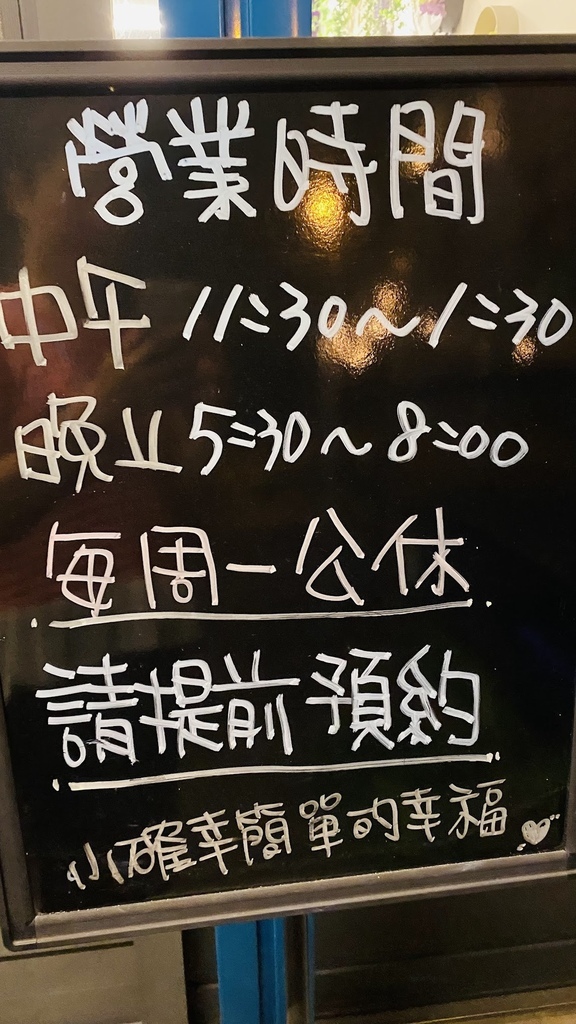 營業時間
中午 11:30~1:30
晚上 5:30~8:00
每周一公休
請提前預約
小確幸簡單的幸福